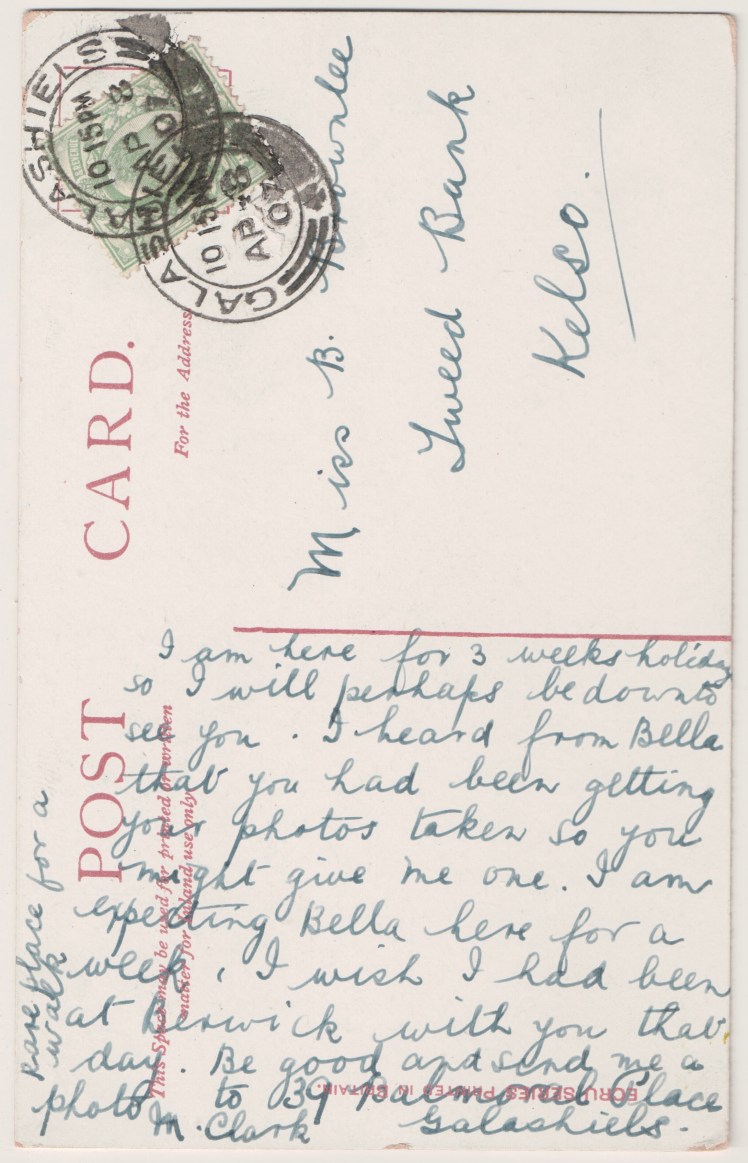 POST CARD.
This Space may be used for printed or written
matter for Inland use only
For the Address
GALASHIELS
10 15 PM
AP 8
07
GALASHIELS
10 15 PM
AP 8
07
Miss B. Brownlee
Tweed Bank
Kelso.
I am here for 3 weeks holiday
so I will perhaps be down to
see you. I heard from Bella
that you had been getting
your photos taken so you
might give me one. I am
expecting Bella here for a
week, I wish I had been
at Berwick with you that
day. Be good and send me a
photo to 39 Balmoral Place
M. Clark Galashiels.
Rare place for a
walk
ECRU SERIES PRINTED IN BRITAIN.